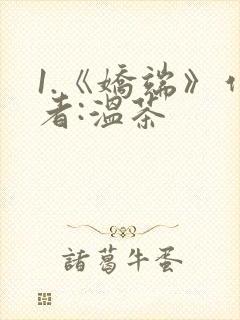 1.《嬌端》作
者:溫茶
諸葛牛蛋